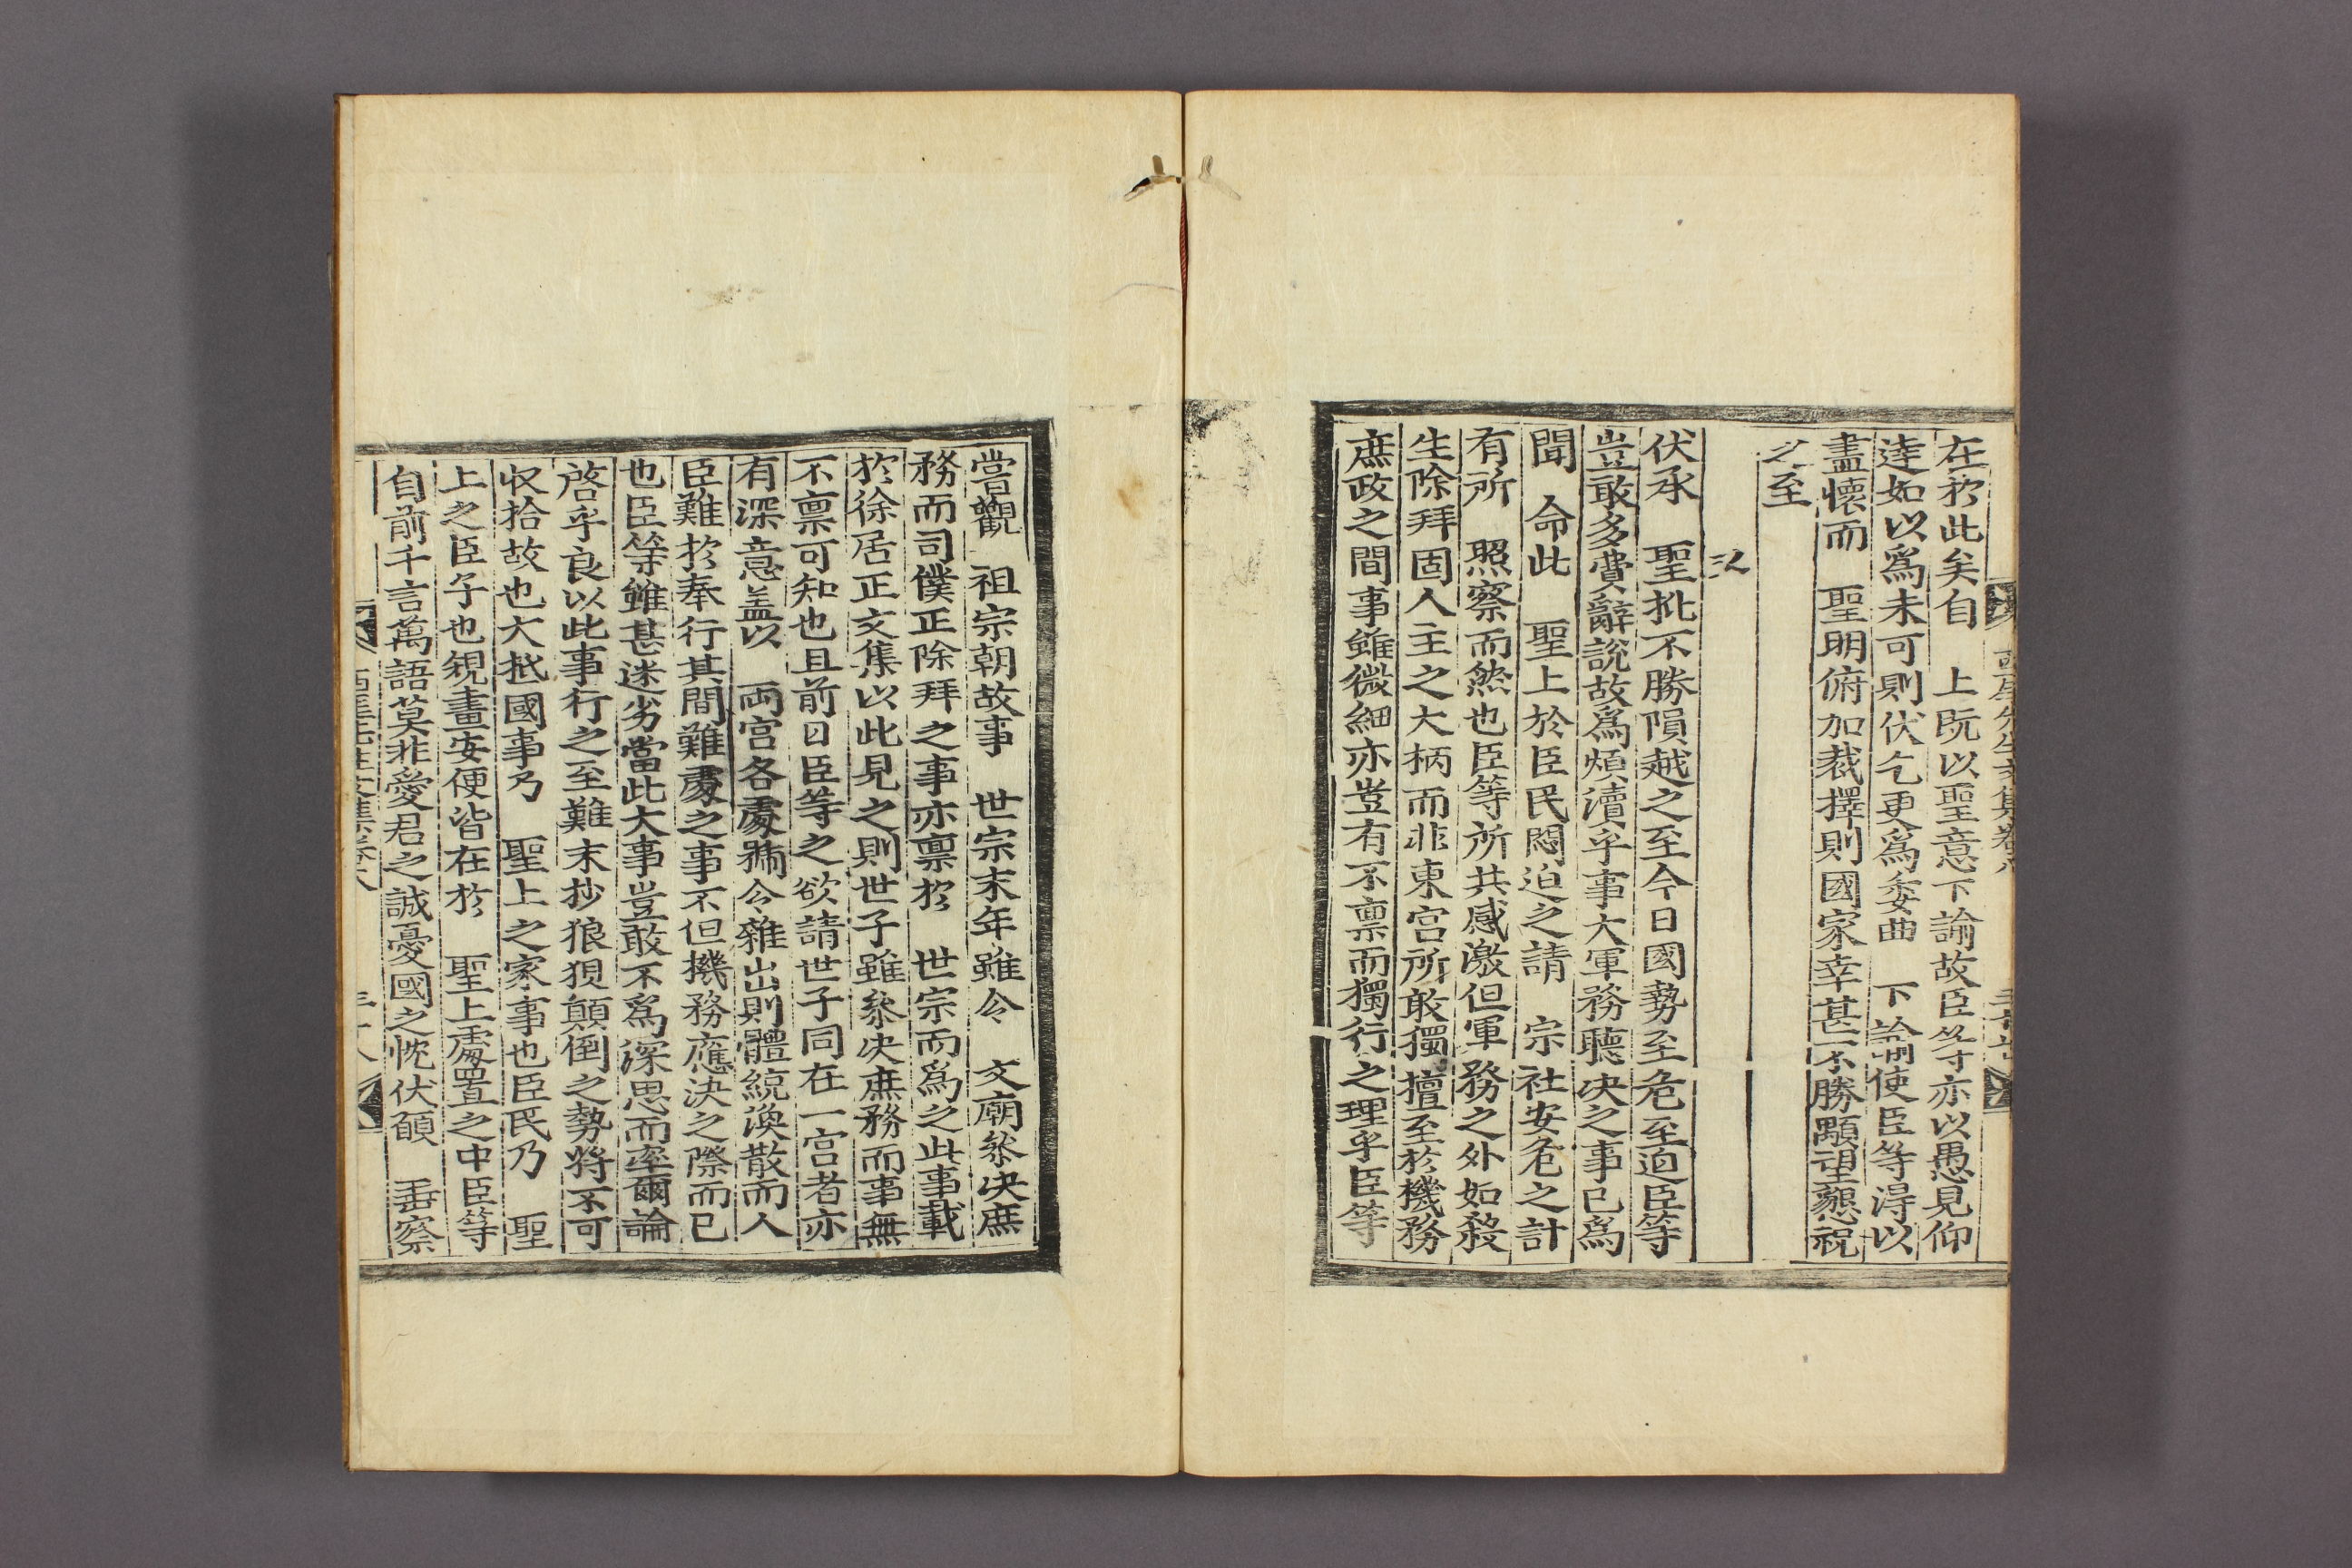 在於此矣自　上旣以聖意下諭故臣等亦以愚見仰
逹如以爲未可則伏乞更爲委曲　下諭使臣等得以
盡懷而　聖明俯加裁擇則國家幸甚不勝顒望懇祝
之至
伏承　聖批不勝隕越之至今日國勢至危至迫臣等
豈敢多費辭說故爲煩瀆乎事大軍務聽决之事已爲
聞　命此　聖上於臣民悶迫之請　宗社安危之計
有所　照察而然也臣等所共感激但軍務之外如殺
生除拜固人主之大柄而非東宮所敢獨擅至於機務
庶政之間事雖微細亦豈有不禀而獨行之理乎臣等
嘗觀　祖宗朝故事　世宗末年雖令　文廟叅决庶
務而司僕正除拜之事亦禀於　世宗而爲之此事載
於徐居正文集以此見之則世子雖叅决庶務而事無
不禀可知也且前日臣等之欲請世子同在一宮者亦
有深意盖以　兩宮各處號令雜出則體統渙散而人
臣難於奉行其間難處之事不但機務應決之際而已
也臣等雖甚迷劣當此大事豈敢不爲深思而率爾論
啓乎良以此事行之至難末抄狼狽顛倒之勢將不可
収拾故也大抵國事乃　聖上之家事也臣民乃　聖
上之臣子也規畫安便皆在於　聖上處置之中臣等
自前千言萬語莫非愛君之誠憂國之忱伏願　垂察